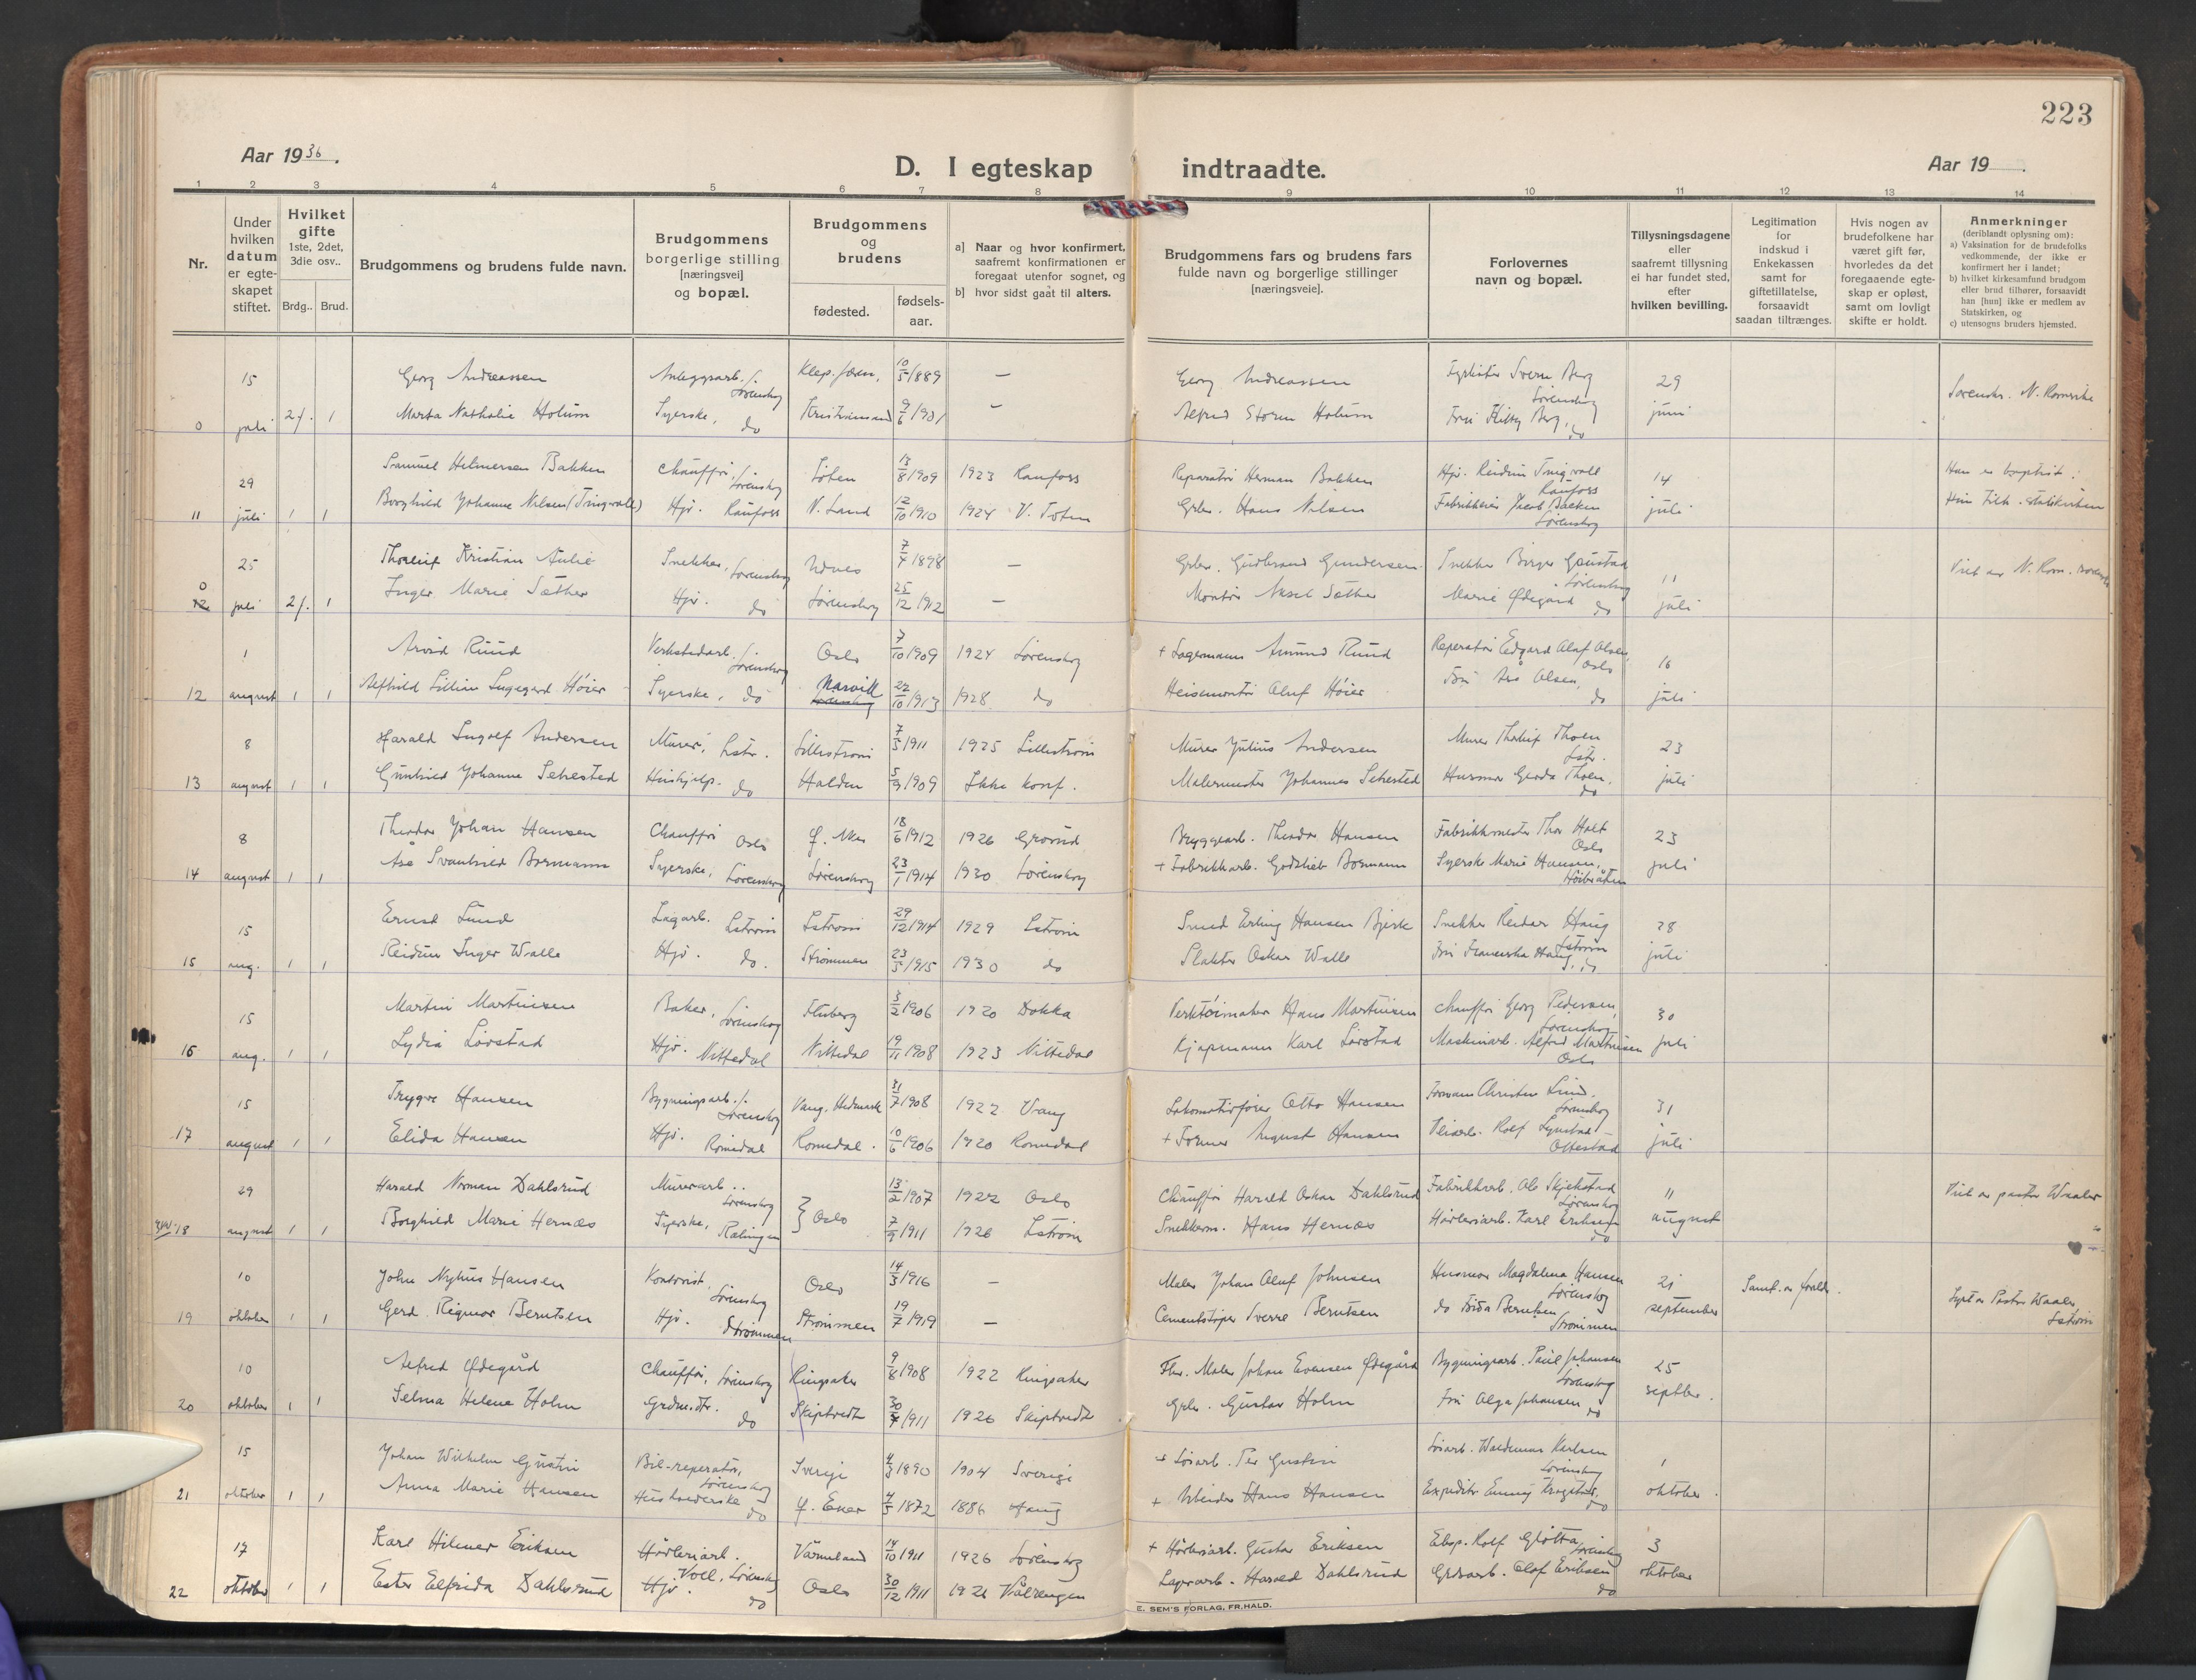 223
Aar 1936.
D. I egteskap indtraadte.
Aar 19
1 2 3 4 5 6 7 8 9 10 11 12 13 14
Nr.
Under hvilken datum er egte-skapet stiftet.
Hvilket gifte
1ste, 2det, 3die osv..
Brdg.. Brud.
Brudgommens og brudens fulde navn.
Brudgommens borgerlige stilling [næringsvei] og bopæl.
Brudgommens og brudens
fødested.
fødsels-aar.
a] Naar og hvor konfirmert, saafremt konfirmationen er foregaat utenfor sognet, og
b] hvor sidst gaat til alters.
Brudgommens fars og brudens fars fulde navn og borgerlige stillinger [næringsveie].
Forlovernes navn og bopæl.
Tillysningsdagene eller saafremt tillysning ei har fundet sted, efter hvilken bevilling.
Legitimation for indskud i Enkekassen samt for giftetillatelse, forsaavidt saadan tiltrænges.
Hvis nogen av brudefolkene har været gift før, hvorledes da det foregaaende egte-skap er opløst, samt om lovligt skifte er holdt.
Anmerkninger
(deriblandt oplysning om):
a) Vaksination for de brudefolks vedkommende, der ikke er konfirmert her i landet;
b) hvilket kirkesamfund brudgom eller brud tilhører, forsaavidt han [hun] ikke er medlem av Statskirken, og
c) utensogns bruders hjemsted.
15 Georg Andreassen Anleggsarb. Lørenskog Klep. Jæren, 10/5 1889 — Georg Andreassen Sverre Berg Lørenskog 29
0 juli 2g. 1 Marta Nathalie Holum Syerske, do Kristiansand 9/6 1901 — Alfred Storm Holum Fru Berg, do juni
29 Samuel Helmersen Bakken Chauffør, Lørenskog Løten 13/8 1909 1923 Raufoss Reparatør Herman Bakken Hjv. Reidun Tingvoll Raufoss 14 Han er baptist
11 juli 1 1 Borghild Johanne Nilsen (Tingvoll) Hjv. Raufoss N. Land 12/10 1910 1924 V. Toten Grbr. Hans Nilsen Fabrikkeier Jacob Bakken Lørenskog juli Hun tilh. statskirken
25 Thorleif Kristian Aulie Snekker, Lørenskog Udnes 7/4 1898 — Grbr. Gudbrand Gundersen Snekker Birger Gaustad Lørenskog 11 Viet av N. Rom.
0 12 juli 2g. 1 Inger Marie Sæther Hjv. do Lørenskog 25/12 1912 — Montør Aksel Sæther Marie Ødegård do juli
1 Arvid Ruud Verkstedarb. Lørenskog Oslo 7/10 1909 1924 Lørenskog + Lagermann Amund Ruud Reperatør Edgard Olaf Olsen, Oslo 16
12 august 1 1 Alfhild Lillian Ingegerd Høier Syerske, do Narvik 22/10 1913 1928 do Heisemontør Oluf Høier Fru Åse Olsen, do juli
8 Harald Ingolf Andersen Murer, Lstr. Lillestrøm 7/5 1911 1925 Lillestrøm Murer Julius Andersen Murer Thorleif Thoen Lstr. 23
13 august 1 1 Gunhild Johanne Sehested Hushjelp. do Halden 5/9 1909 Ikke konf. Malermester Johannes Sehested Husmor Gerda Thoen. do juli
8 Theodor Johan Hansen Chauffør Oslo Ø. Aker 18/6 1912 1926 Grorud Bryggearb. Theodor Hansen Fabrikkmester Thor Holt Oslo 23
14 august 1 1 Åse Svanhild Bormann Syerske, Lørenskog Lørenskog 23/1 1914 1930 Lørenskog + Fabrikkarb. Godtlieb Bormann Syerske Marie Hansen, Høibråten juli
15 Ernst Lund Lagarb. Lstrøm Lstrøm 29/12 1914 1929 Lstrøm Smed Erling Hansen Bjerk Snekker Reidar Haug Lstrøm 28
15 aug. 1 1 Reidun Inger Walle Hjv. do. Strømmen 23/5 1915 1930 do Slakter Oskar Walle Fru Franciska Haug, do juli
15 Martin Martinsen Baker, Lørenskog Fluberg 3/2 1906 1920 Dokka Verktøimaker Hans Martinsen Chauffør Georg Pedersen, Lørenskog 30
16 aug. 1 1 Lydia Lørstad Hjv. Nittedal Nittedal 19/11 1908 1923 Nittedal Kjøpmann Karl Lørstad Maskinarb. Alfred Martinsen Oslo juli
15 Trygve Hansen Bygningsarb. Lørenskog Vang. Hedmark 31/7 1908 1922 Vang Lokomotivfører Otto Hansen Formann Christen Lund. Lørenskog 31
17 august 1 1 Elida Hansen Hjv. Romedal Romedal. 10/6 1906 1920 Romedal + Former August Hansen Veiarb. Rolf Lynstad Ottestad juli
29 Harald Norman Dahlsrud Murerarb.. Lørenskog Oslo 13/2 1907 1922 Oslo Chauffør Harald Oskar Dahlsrud Fabrikkarb. Ole Skjelstad Lørenskog 11 Viet av pastor Waaler
18 august 1 1 Borghild Marie Hernæs Syerske, Rælingen 7/9 1911 1926 Lstrøm Snekkerm. Hans Hernæs Høvleriarb. Karl Eriksen do august
10 John Nyhus Hansen Kontorist, Lørenskog Oslo 14/3 1916 — Maler Johan Oluf Johnsen Husmor Magdalena Hansen Lørenskog 21 Samt. av foreldr.
19 oktober 1 1 Gerd Rigmor Berntsen Hjv. Strømmen Strømmen 19/7 1919 — Cementstøper Sverre Berntsen do Berntsen Strømmen september Lyst av Pastor Waaler, Lstrøm
10 Alfred Ødegård Chauffør, Lørenskog Ringsaker 9/8 1908 1922 Ringsaker Fhv. Maler Johan Evensen Ødegård Bygningsarb. Paul Johansen Lørenskog 25
20 oktober 1 1 Selma Helene Holm Grdm.dtr. do Skiptvedt 30/4 1911 1926 Skiptvedt Grbr. Gustav Holm Fru Olga Johansen do septber.
15 Johan Wilhelm Gustin Bil-reperatør, Lørenskog Sverige 4/3 1890 1904 Sverige + Løsarb. Per Gustin Løsarb. Waldemar Karlsen Lørenskog 1
21 oktober 1 1 Anna Marie Hansen Husholderske do Ø. Eker 4/5 1872 1886 Haug + Arbeider Hans Hansen Expeditr. Emmy do oktober.
17 Karl Hilmar Eriksen Høvleriarb. Voll. Lørenskog Värmland 14/10 1911 1926 Lørenskog + Høvleriarb. Gustav Eriksen Eksp. Rolf Gløtta, Lørenskog 3
22 oktober 1 1 Ester Elfrida Dahlsrud Hjv. do Oslo 30/12 1911 1926 Vålrengen Lagerarb. Harald Dahlsrud Grdsarb. Olaf Eriksen do oktober
E. SEM'S FORLAG, FR.HALD.